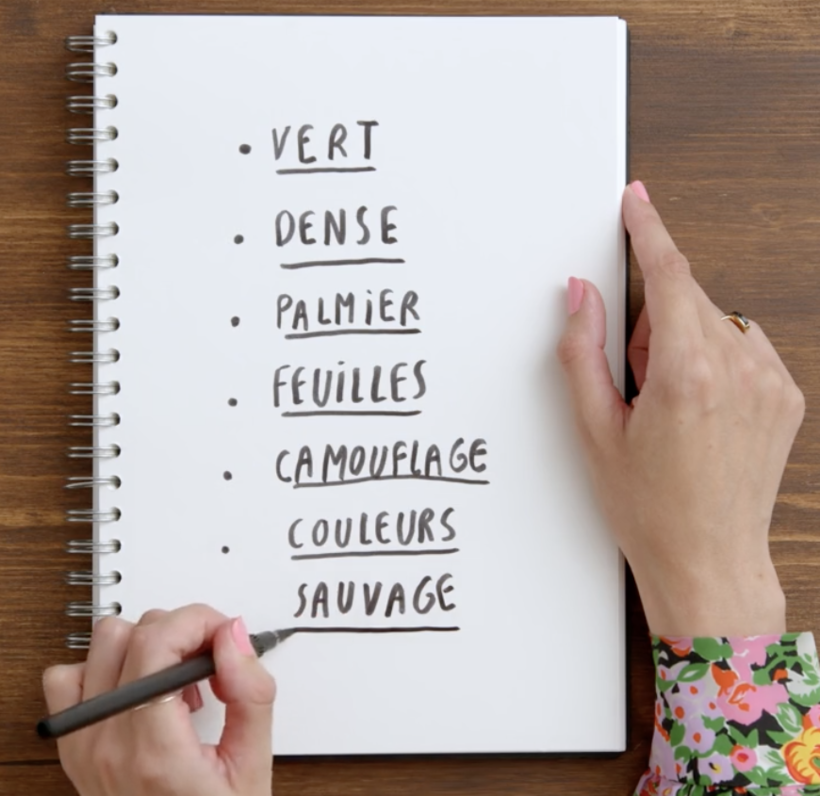 • VERT
• DENSE
• PALMiER
• FEUiLLES
• CAMOUFLAGE
• COULEURS
SAUVAGE